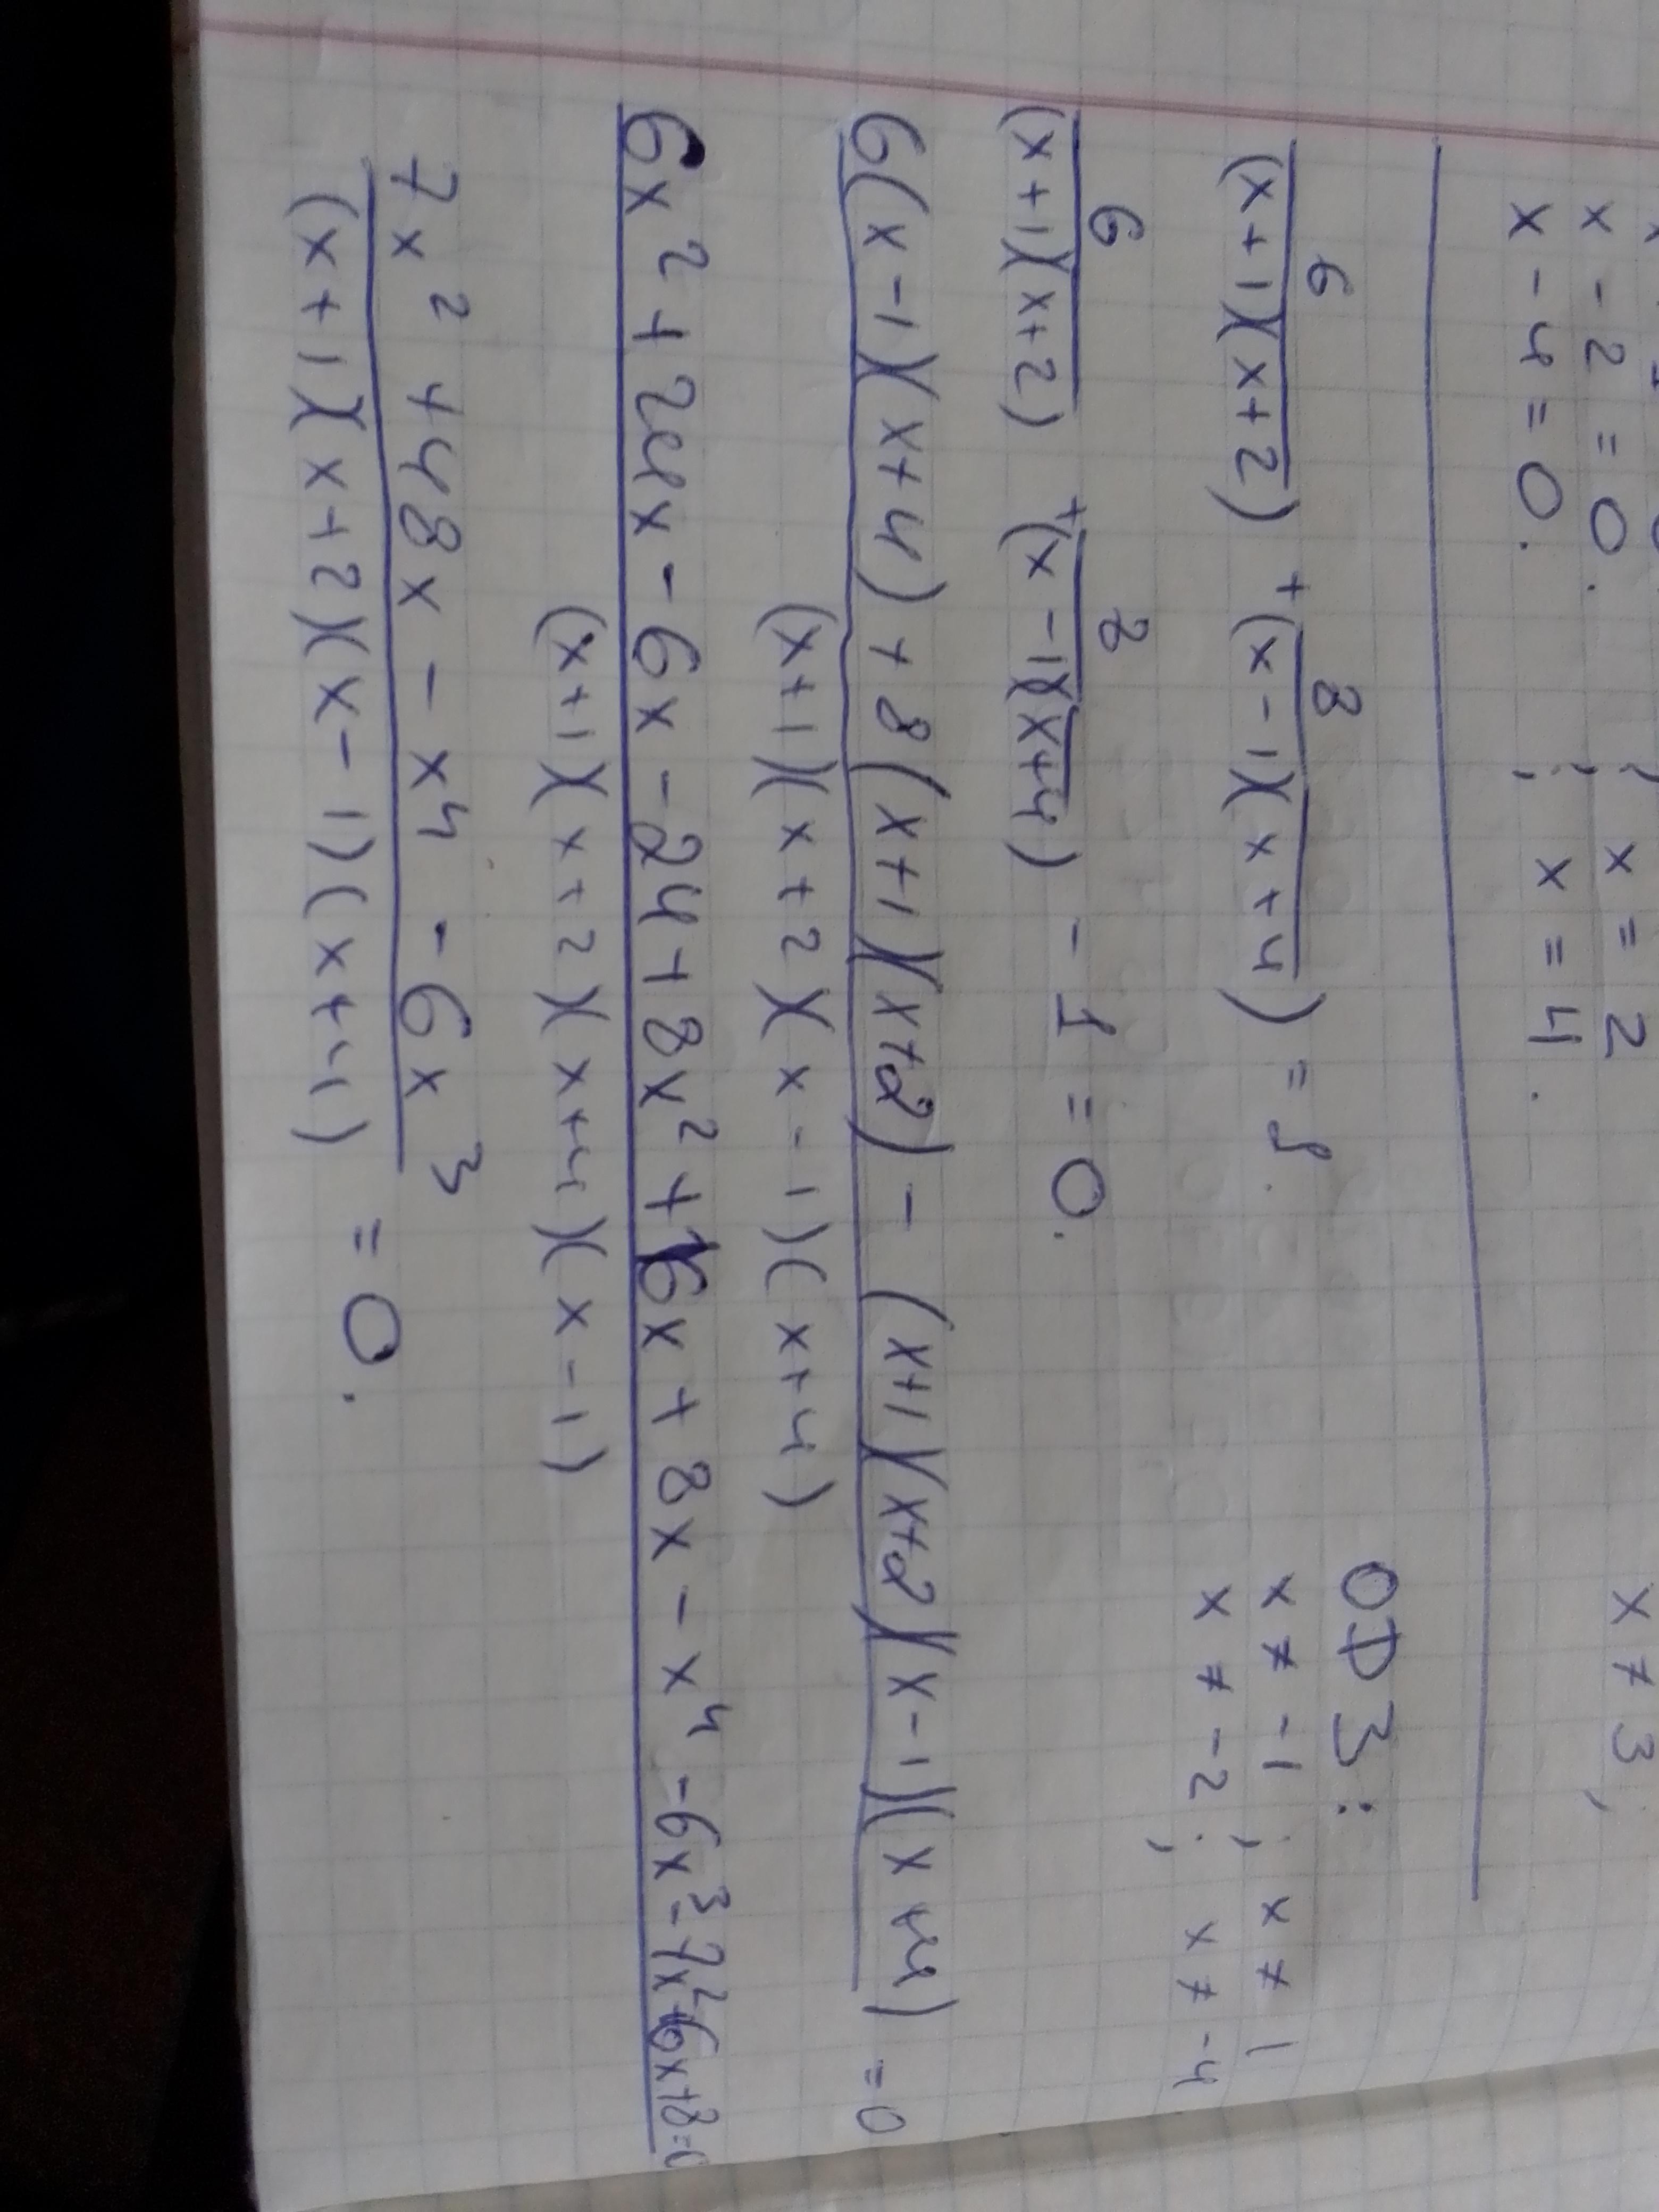 x - 2 = 0. ; x = 2 x ≠ 3;
x - 4 = 0. ; x = 4.
6/((x+1)(x+2)) + 8/((x-1)(x+4)) = 1. ОДЗ:
x ≠ -1; x ≠ 1
x ≠ -2; x ≠ -4
6/((x+1)(x+2)) + 8/((x-1)(x+4)) - 1 = 0.
6(x-1)(x+4) + 8(x+1)(x+2) - (x+1)(x+2)(x-1)(x+4) = 0
(x+1)(x+2)(x-1)(x+4)
6x² + 24x - 6x - 24 + 8x² + 16x + 8x - x⁴ - 6x³ - 7x² + 6x + 8 = 0
(x+1)(x+2)(x+4)(x-1)
7x² + 48x - x⁴ - 6x³
(x+1)(x+2)(x-1)(x+4) = 0.